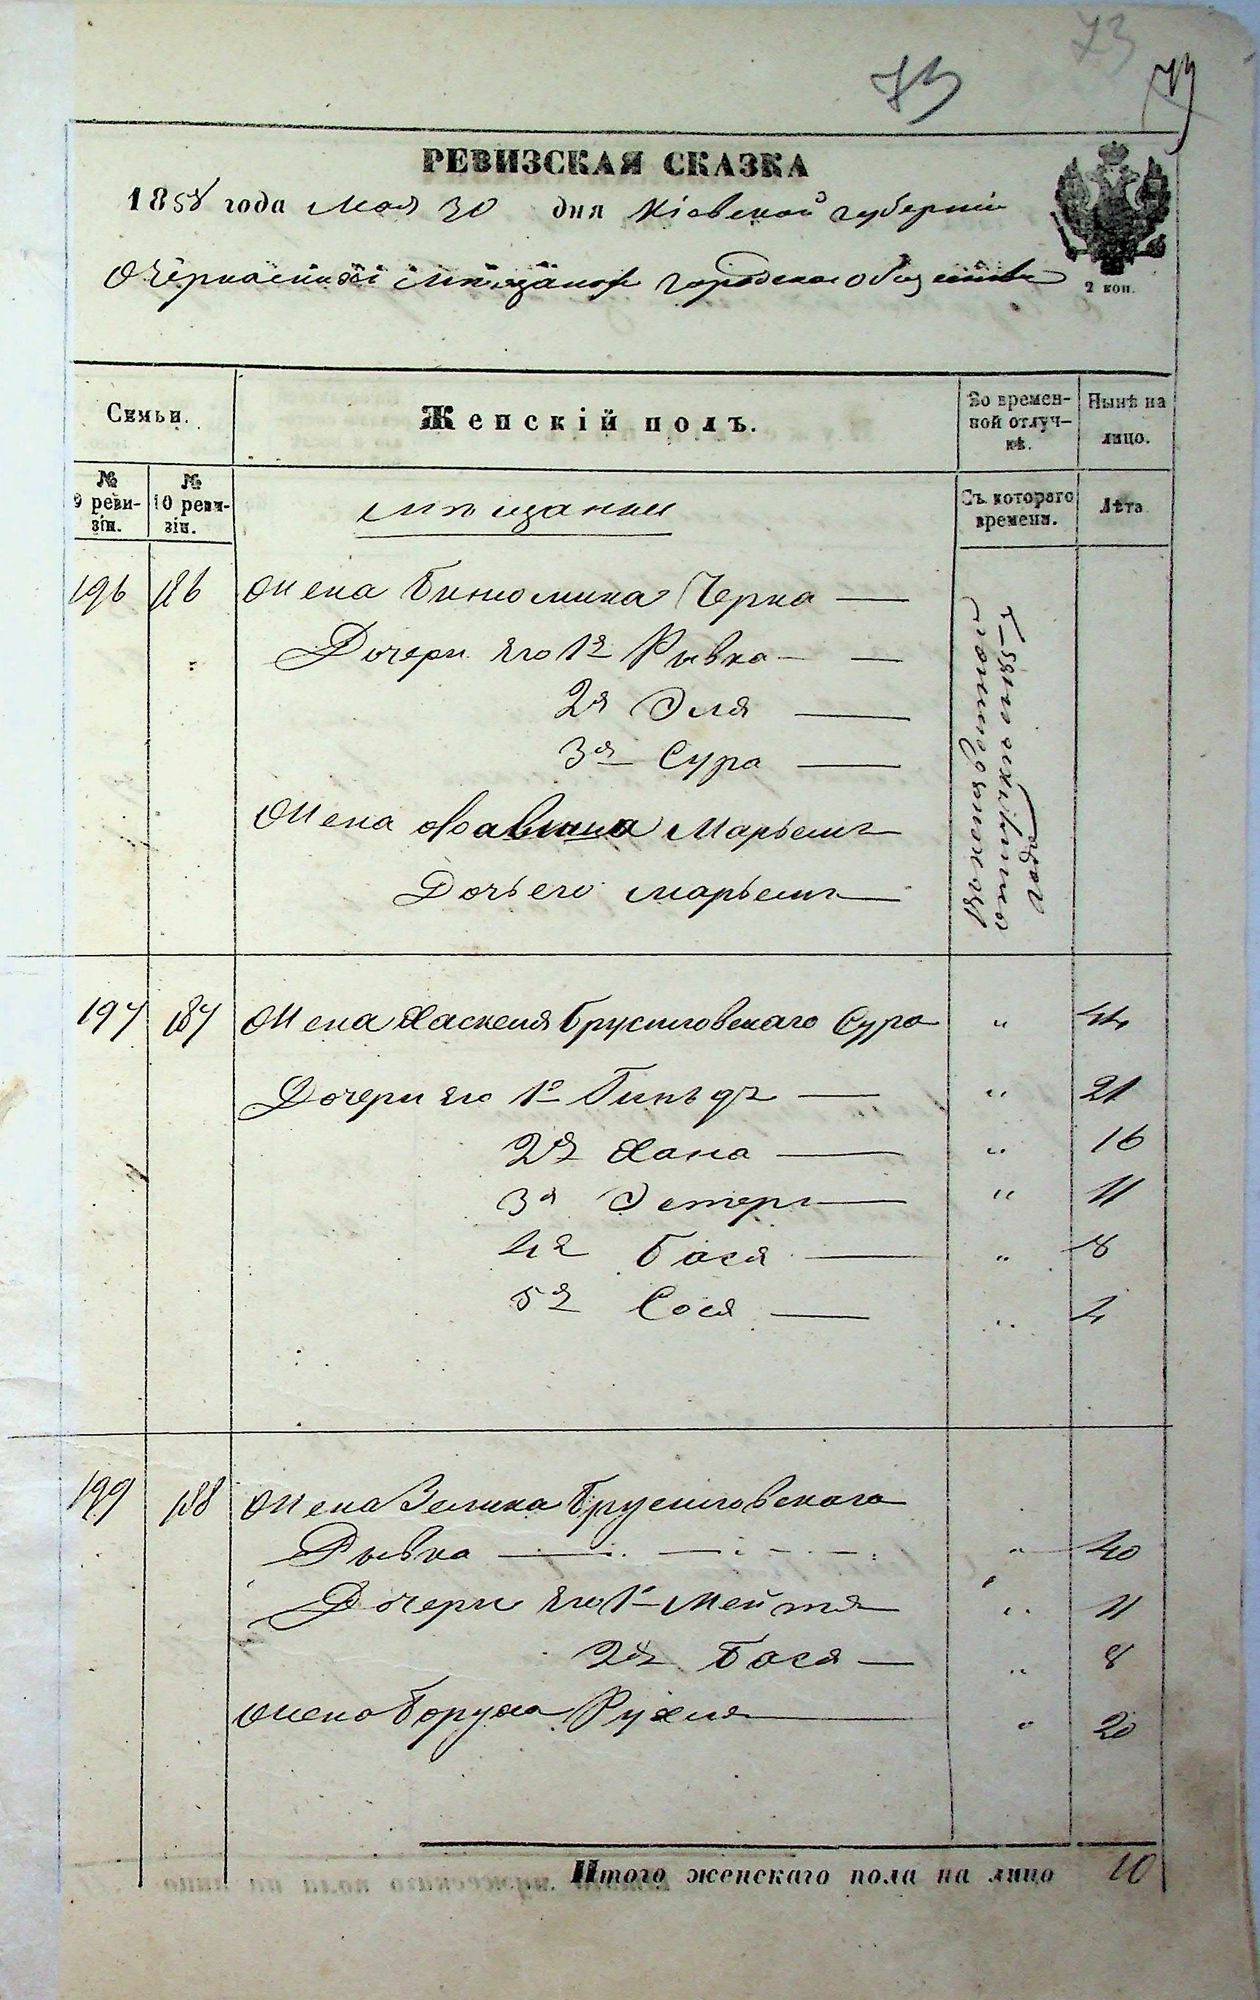 73
73
73
РЕВИЗСКАЯ СКАЗКА
1858 года Мая 30 дня Кіевской губерніи
О Черкасскихъ мѣщанахъ городскаго общества
2 коп.
Семьи.
Женскій полъ.
Во времен-
ной отлуч-
кѣ.
Нынѣ на
лицо.
№
9 реви-
зіи.
№
10 реви-
зіи.
мѣщанки
Съ котораго
времени.
Лѣта
196 186 Жена Бинюмина Черна —
Дочери его 1я Рывка —
2я Эля —
3я Сура —
Жена Марьемъ
Дочь его Марьемъ —
года
197 187 Жена Хаскеля Брусиловскаго Сура „ 44
Дочери его 1я — „ 21
2я Хана — „ 16
3я Эстеръ — „ 11
4я Бася — „ 8
5я Сося — „ 4
199 188 Жена Зелика Брусиловскаго
Рывка — „ 40
Дочери его 1я Мейтя „ 11
2я Бася — „ 8
Жена Боруха Рухля — „ 20
Итого женскаго пола на лицо 10